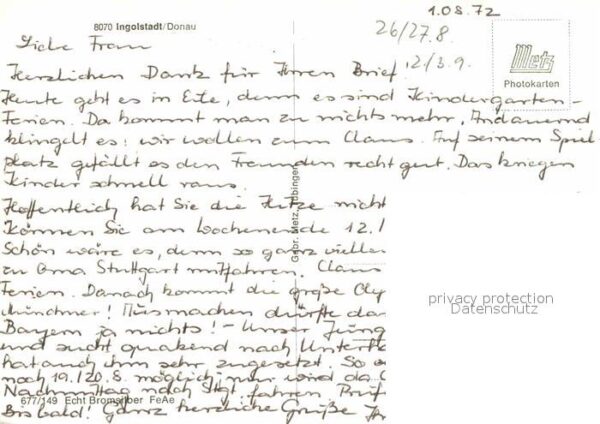 8070 Ingolstadt/Donau
1.08.72
26/27.8.
12/3.9.
Metz
Photokarten
Liebe Frau
Herzlichen Dank für Ihren Brief.
Heute geht es in Eile, denn es sind Kindergarten-
Ferien. Da kommt man zu nichts mehr. Andauernd
klingelt es: wir wollen zum Claus. Auf seinem Spiel-
platz gefällt es den Freunden recht gut. Das kriegen
Kinder schnell raus.
Hoffentlich hat Sie die Hitze nicht
Können Sie am Wochenende 12./
Schön wäre es, denn so ganz
zu Oma Stuttgart mitfahren. Claus
Ferien. Danach kommt die große
Münchner! Ausmachen dürfte
Bayern ja nichts! - Unser
und sucht quakend nach
hat auch ihm sehr zugesetzt. So
noch 19./20.8. möglich, nur wird da
Nachmittag nach Stgt. fahren.
Bis bald! Ganz herzliche Grüße
Gebr. Metz, Tübingen
677/149 Echt Bromsilber FeAe
privacy protection
Datenschutz